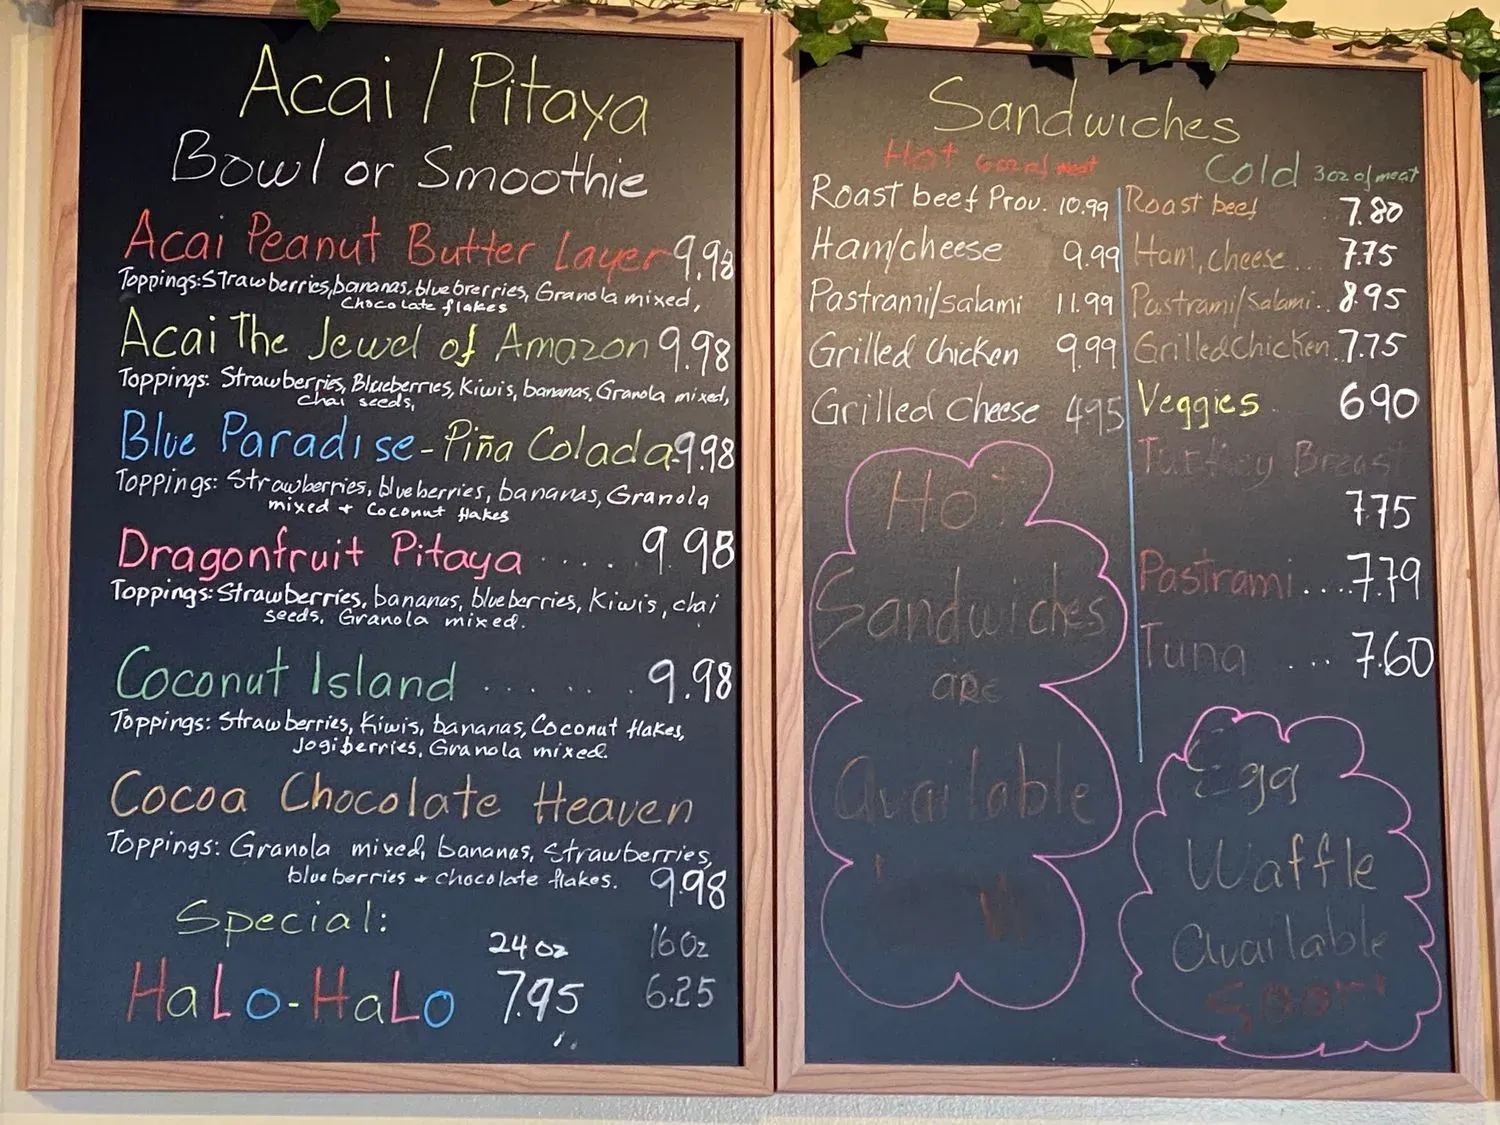 Acai / Pitaya
Bowl or Smoothie
Acai Peanut Butter Layer 9.98
Toppings: Strawberries, bananas, bluebrerries, Granola mixed,
Chocolate flakes
Acai The Jewel of Amazon 9.98
Toppings: Strawberries, Blueberries, Kiwis, bananas, Granola mixed,
chai seeds,
Blue Paradise - Piña Colada 9.98
Toppings: Strawberries, blueberries, bananas, Granola
mixed + Coconut flakes
Dragonfruit Pitaya .... 9.98
Toppings: Strawberries, bananas, blueberries, Kiwis, chai
seeds, Granola mixed.
Coconut Island ...... 9.98
Toppings: Strawberries, Kiwis, bananas, Coconut flakes,
Jogiberries, Granola mixed.
Cocoa Chocolate Heaven
Toppings: Granola mixed, bananas, Strawberries,
blueberries + chocolate flakes. 9.98
Special:
24 oz 16 oz
HaLo-HaLo 7.95 6.25
Sandwiches
Hot 6oz of meat
Roast beef Prov. 10.99
Ham/cheese 9.99
Pastrami/salami 11.99
Grilled Chicken 9.99
Grilled Cheese 4.95
Hot
Sandwiches
are
Available
Cold 3oz of meat
Roast beef 7.80
Ham, cheese... 7.75
Pastrami/Salami.. 8.95
Grilled Chicken.. 7.75
Veggies 6.90
Turkey Breast
7.75
Pastrami .... 7.79
Tuna ... 7.60
Egg
Waffle
Available
Soon!